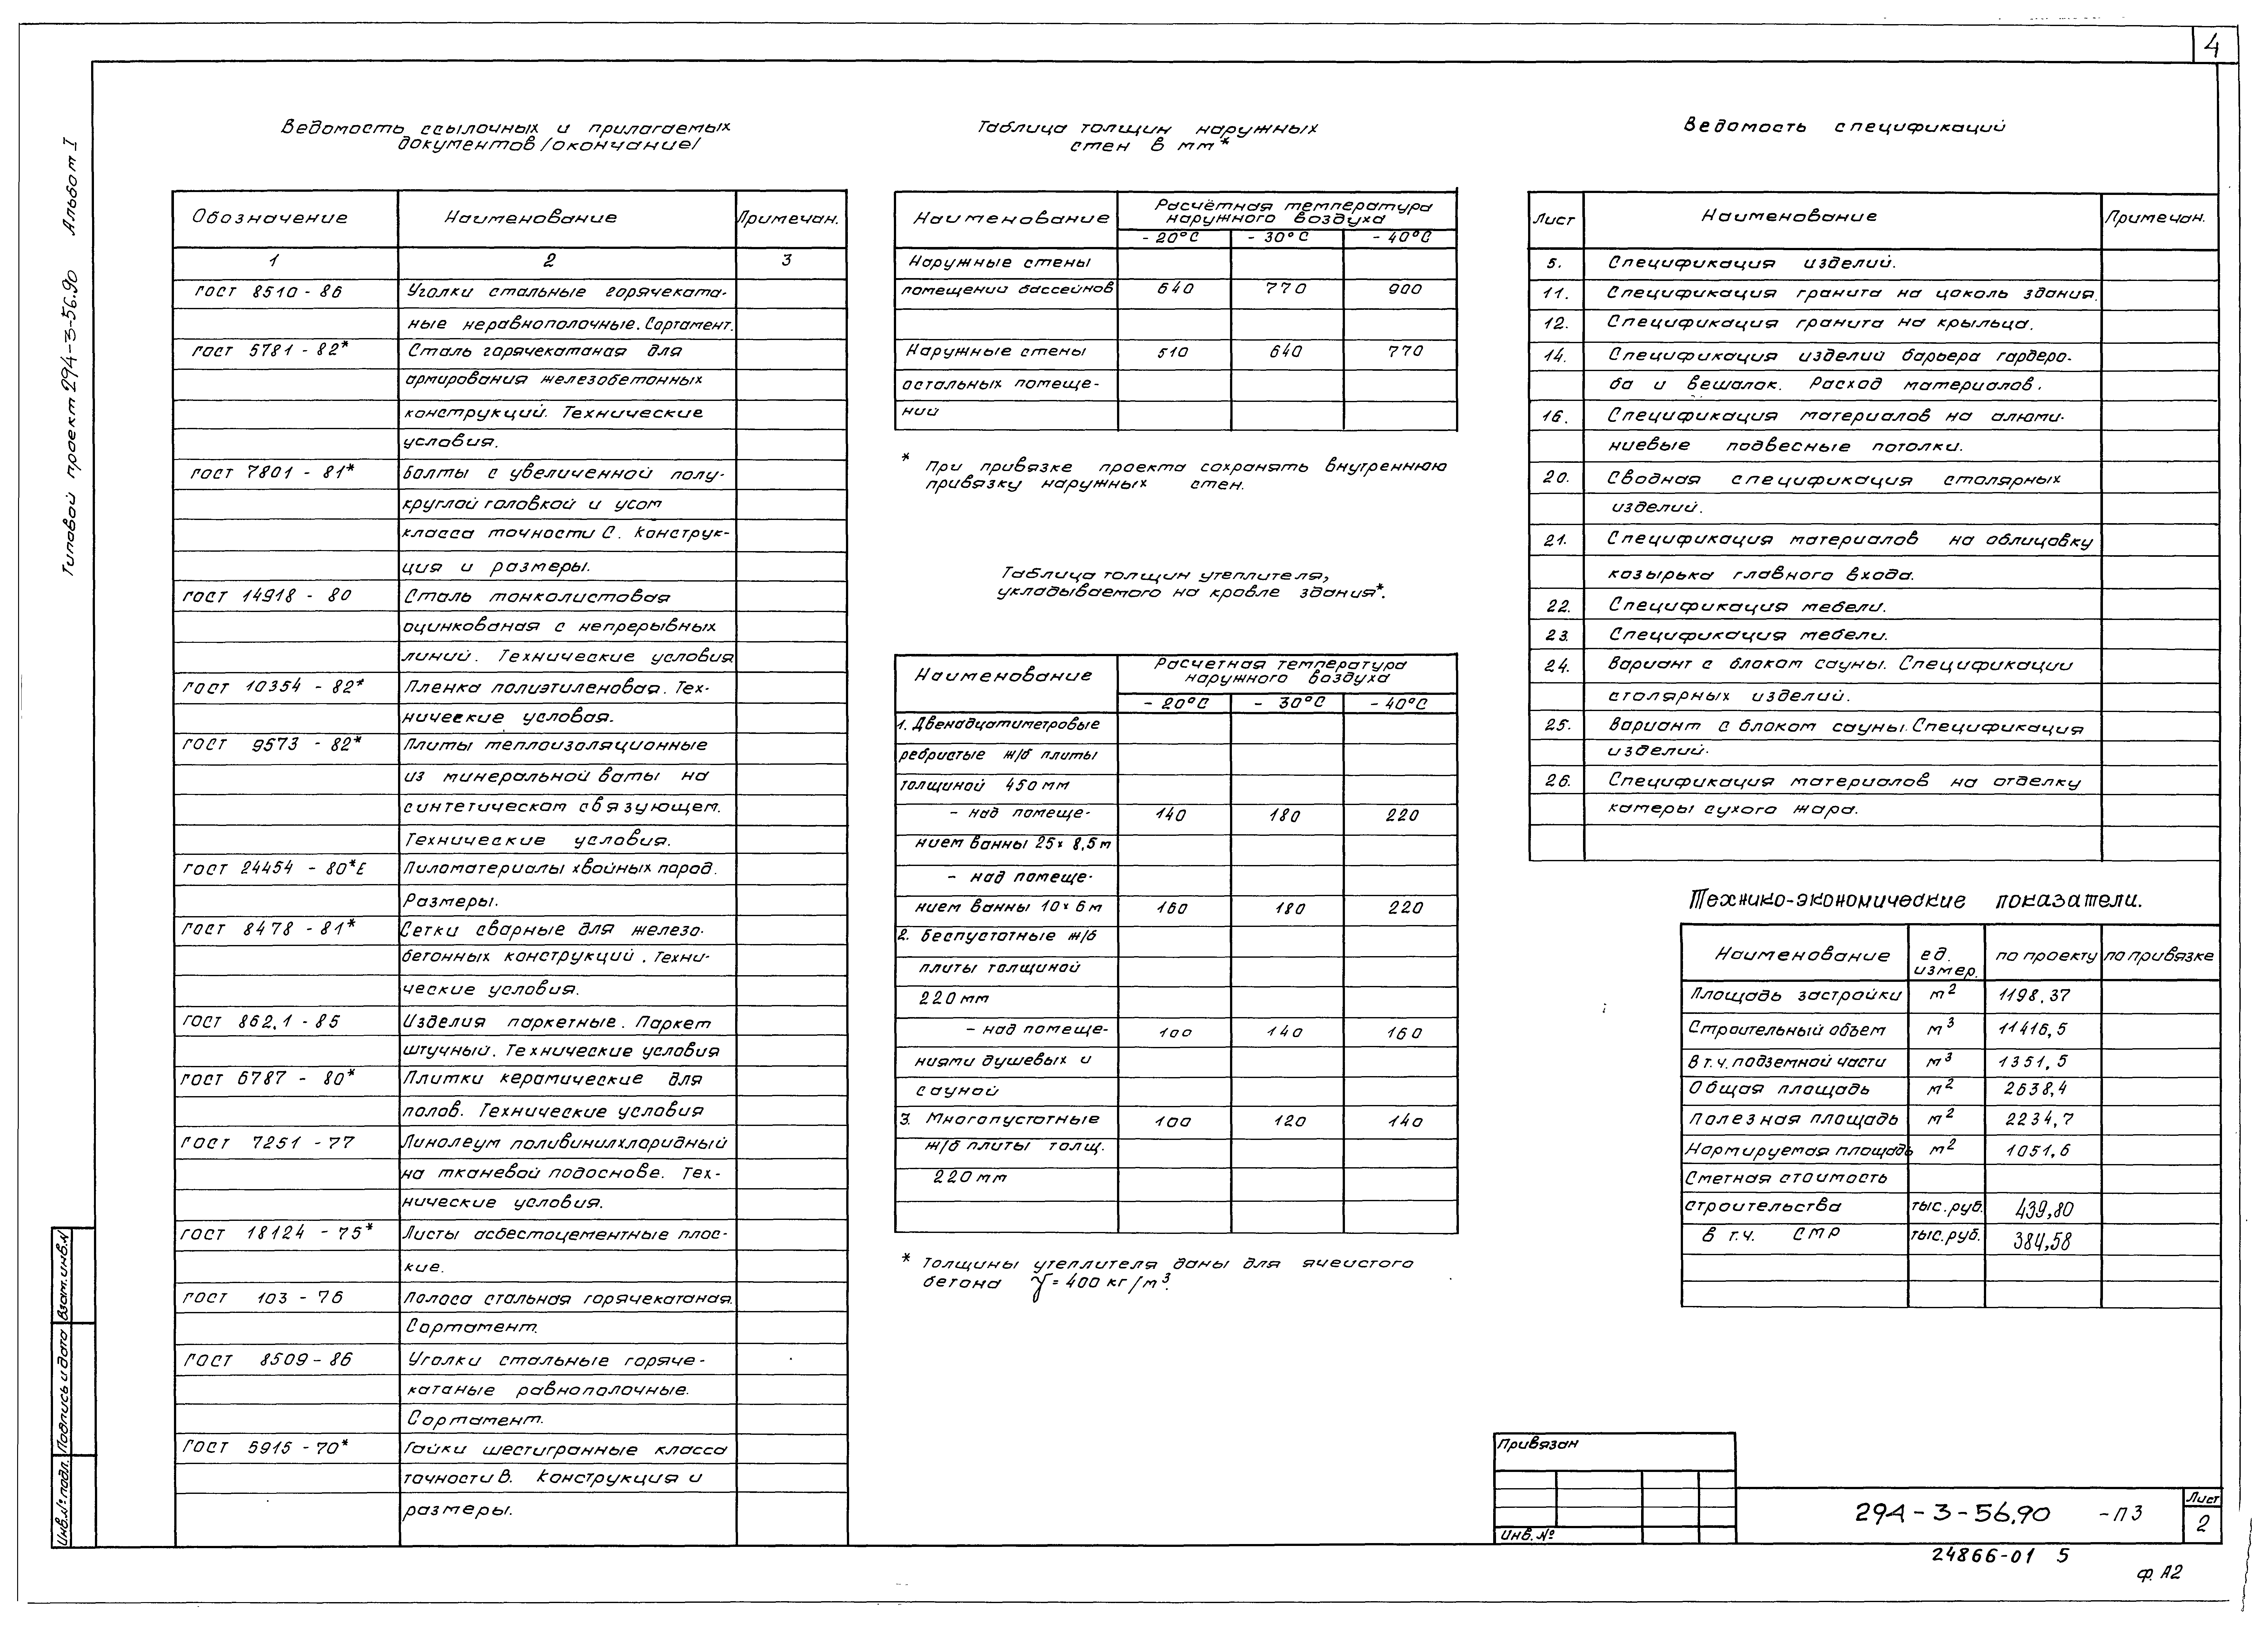 4
Типовой проект 294-3-56.90 Альбом I
Ведомость ссылочных и прилагаемых
документов /окончание/
Обозначение Наименование Примечан.
1 2 3
ГОСТ 8510 - 86 Уголки стальные горячеката-
ные неравнополочные. Сортамент.
ГОСТ 5781 - 82* Сталь горячекатаная для
армирования железобетонных
конструкций. Технические
условия.
ГОСТ 7801 - 81* Болты с увеличенной полу-
круглой головкой и усом
класса точности С. Конструк-
ция и размеры.
ГОСТ 14918 - 80 Сталь тонколистовая
оцинкованая с непрерывных
линий. Технические условия
ГОСТ 10354 - 82* Пленка полиэтиленовая. Тех-
нические условая.
ГОСТ 9573 - 82* Плиты теплоизоляционные
из минеральной ваты на
синтетическом связующем.
Технические условия.
ГОСТ 24454 - 80*Е Пиломатериалы хвойных пород.
Размеры.
ГОСТ 8478 - 81* Сетки сварные для железо-
бетонных конструкций. Техни-
ческие условия.
ГОСТ 862.1 - 85 Изделия паркетные. Паркет
штучный. Технические условия
ГОСТ 6787 - 80* Плитки керамические для
полов. Технические условия
ГОСТ 7251 - 77 Линолеум поливинилхлоридный
на тканевой подоснове. Тех-
нические условия.
ГОСТ 18124 - 75* Листы асбестоцементные плос-
кие.
ГОСТ 103 - 76 Полоса стальная горячекатаная.
Сортамент.
ГОСТ 8509 - 86 Уголки стальные горяче-
катаные равнополочные.
Сортамент.
ГОСТ 5915 - 70* Гайки шестигранные класса
точности В. Конструкция и
размеры.
Таблица толщин наружных
стен в мм*
Наименование Расчётная температура
наружного воздуха
- 20°С - 30°С - 40°С
Наружные стены
помещений бассейнов 640 770 900
Наружные стены 510 640 770
остальных помеще-
ний
* При привязке проекта сохранять внутреннюю
привязку наружных стен.
Таблица толщин утеплителя,
укладываемого на кровле здания*.
Наименование Расчетная температура
наружного воздуха
- 20°С - 30°С - 40°С
1. Двенадцатиметровые
ребристые ж/б плиты
толщиной 450 мм
- над помеще- 140 180 220
нием ванны 25х 8,5 м
- над помеще-
нием ванны 10х 6 м 160 180 220
2. Беспустотные ж/б
плиты толщиной
220 мм
- над помеще- 100 140 160
ниями душевых и
сауной
3. Многопустотные 100 120 140
ж/б плиты толщ.
220 мм
* Толщины утеплителя даны для ячеистого
бетона γ = 400 кг/м³.
Ведомость спецификаций
Лист Наименование Примечан.
5. Спецификация изделий.
11. Спецификация гранита на цоколь здания.
12. Спецификация гранита на крыльца.
14. Спецификация изделий барьера гардеро-
ба и вешалок. Расход материалов.
16. Спецификация материалов на алюми-
ниевые подвесные потолки.
20. Сводная спецификация столярных
изделий.
21. Спецификация материалов на облицовку
козырька главного входа.
22. Спецификация мебели.
23. Спецификация мебели.
24. Вариант с блоком сауны. Спецификации
столярных изделий.
25. Вариант с блоком сауны. Спецификация
изделий.
26. Спецификация материалов на отделку
камеры сухого жара.
Технико-экономические показатели.
Наименование ед. измер. по проекту по привязке
Площадь застройки м² 1198,37
Строительный объем м³ 11416,5
В т.ч. подземной части м³ 1351,5
Общая площадь м² 2638,4
Полезная площадь м² 2234,7
Нормируемая площадь м² 1051,6
Сметная стоимость
строительства тыс. руб. 439,80
в т.ч. СМР тыс. руб. 384,58
Привязан
Инв. №
294 - 3 - 56.90 - ПЗ
Лист
2
24866-01 5
ф. А2
Инв. № подл. Подпись и дата Взам. инв. №